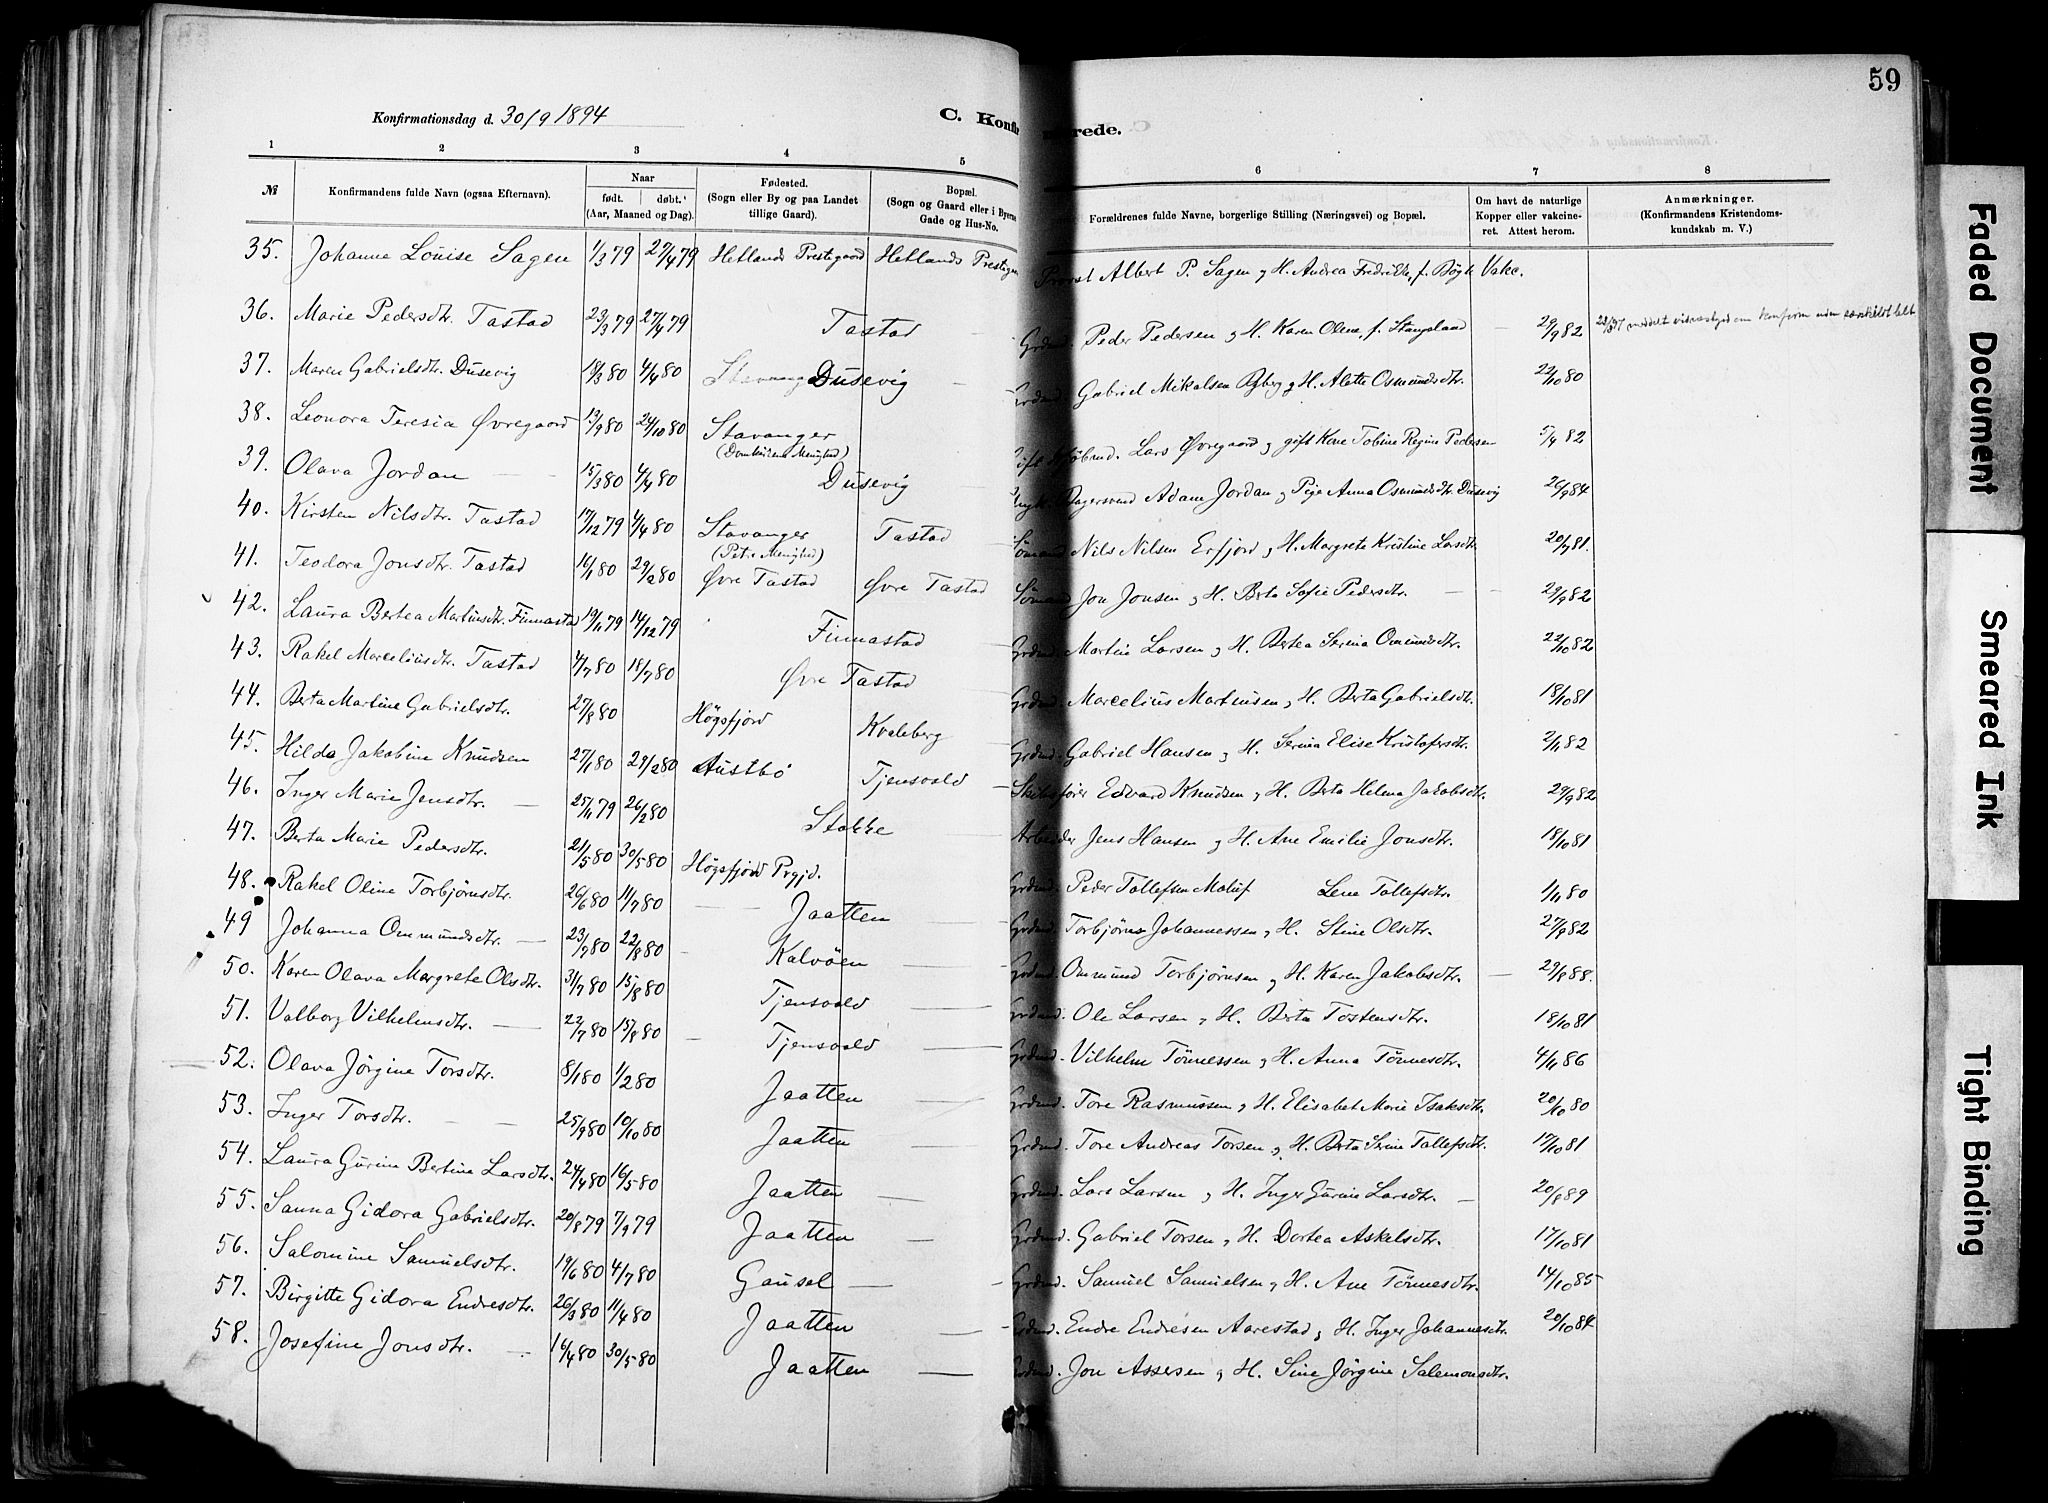 59
Konfirmationsdag d. 30/9 1894
C. Konfir
erede.
1 2 3 4 5 6 7 8
№
Konfirmandens fulde Navn (ogsaa Efternavn).
Naar
født. døbt.
(Aar, Maaned og Dag).
Fødested.
(Sogn eller By og paa Landet
tillige Gaard).
Bopæl.
(Sogn og Gaard eller i Byerne
Gade og Hus-No.
Forældrenes fulde Navne, borgerlige Stilling (Næringsvei) og Bopæl.
Om havt de naturlige
Kopper eller vakcine-
ret. Attest herom.
Anmærkninger.
(Konfirmandens Kristendoms-
kundskab m. V.)
35. Johanne Louise Sagen 1/3 79 27/4 79 Hetlands Prestegaard Hetlands Prestegaa Provst Albert P. Sagen og H. Andrea Fredrikke, f. Bøgh Vakc.
36. Marie Pedersdtr. Tastad 23/3 79 27/4 79 Tastad Grdmd. Peder Pedersen og H. Karen Oline, f. Stangeland 29/9 82
37. Maren Gabrielsdtr. Dusevig 18/3 80 4/4 80 Dusevig Gabriel Mikalsen Byberg og H. Alette Osmundsdtr. 22/10 80
38. Leonora Teresia Øvregaard 13/9 80 24/10 80 Stavanger Lars Øvregaard og gift Kone Tobine Regine Pedersen 5/4 82
(Domkirkens Menighed)
39. Olava Jordan 15/3 80 4/4 80 Dusevig Adam Jordan og Pige Anna Osmundsdtr. Dusevig 26/9 84
40. Kirsten Nilsdtr. Tastad 17/12 79 4/4 80 Stavanger Tastad Sømand Nils Nilsen Erfjord og H. Margrete Kristine Larsdtr. 20/7 81.
(Petri Menighed)
41. Teodora Jonsdtr. Tastad 16/1 80 29/2 80 Øvre Tastad Øvre Tastad Sømand Jon Jonsen og H. Berta Sofie Pedersdtr. 29/9 82
42. Laura Bertea Martinsdtr. Finnestad 19/11 79 14/12 79 Finnastad Grdmd. Martin Larsen og H. Bertea Serina Omundsdtr. 22/10 82
43. Rakel Marceliusdtr. Tastad 4/7 80 18/7 80 Øvre Tastad Grdmd. Marcelius Martinsen og H. Berta Gabrielsdtr. 18/10 81
44. Berta Martine Gabrielsdtr. 27/8 80 Høgsfjord Kvaleberg Grdmd. Gabriel Hansen og H. Serina Elise Kristofersdtr. 2/11 82
45. Hilda Jakobine Knudsen 27/1 80 29/2 80 Austbø Tjensvold Skibsfører Edvard Knudsen og H. Berta Helena Jakobsdtr. 29/9 82
46. Inger Marie Jensdtr. 25/11 79 26/2 80 Stokke Arbeider Jens Hansen og H. Ane Emilie Jonsdtr. 18/10 81
47. Berta Marie Pedersdtr. 21/5 80 30/5 80 Høgsfjord Prgjd. Grdmd. Peder Tollefsen Lene Tollefsdtr. 1/11 80
48. Rakel Oline Torbjørnsdtr. 26/6 80 11/7 80 Jaatten Grdmd. Torbjørn Johannessen og H. Stine Olsdtr. 27/9 82
49 Johanna Ommundsdtr. 23/7 80 22/8 80 Kalvøen Grdmd. Ommund Torbjørnsen og H. Karen Jakobsdtr. 29/8 88.
50. Karen Olava Margrete Olsdtr. 31/7 80 15/8 80 Tjensvold Grdmd. Ole Larsen og H. Berta Tostensdtr. 18/10 81
51. Valborg Vilhelmsdtr. 22/7 80 15/8 80 Tjensvold Grdmd. Vilhelm Tønnessen og H. Anna Tønnesdtr. 4/11 86
52. Olava Jørgine Torsdtr. 8/1 80 1/2 80 Jaatten Grdmd. Tore Rasmussen og H. Elisabet Marie Isaksdtr. 20/10 80
53. Inger Torsdtr. 25/9 80 10/10 80 Jaatten Grdmd. Tore Andreas Torsen og H. Berta Serine Tollefsdtr. 17/10 81
54. Laura Gurine Bertine Larsdtr. 24/4 80 16/5 80 Jaatten Grdmd. Lars Larsen og H. Inger Gurine Larsdtr. 20/8 89
55. Sanna Gidora Gabrielsdtr. 20/8 79 7/9 79 Jaatten Grdmd. Gabriel Torsen og H. Dortea Askelsdtr. 17/10 81
56. Salomine Samuelsdtr. 19/6 80 4/7 80 Gausel Grdmd. Samuel Samuelsen og H. Ane Tønnesdtr. 14/10 85
57. Birgitte Gidora Endresdtr. 26/3 80 11/4 80 Jaatten Grdmd. Endre Endresen Aarestad og H. Inger Johannesdtr. 20/10 84
58. Josefine Jonsdtr. 16/4 80 30/5 80 Jaatten Grdmd. Jon Assersen og H. Sine Jørgine Salomonsdtr.
Faded Document
Smeared Ink
Tight Binding